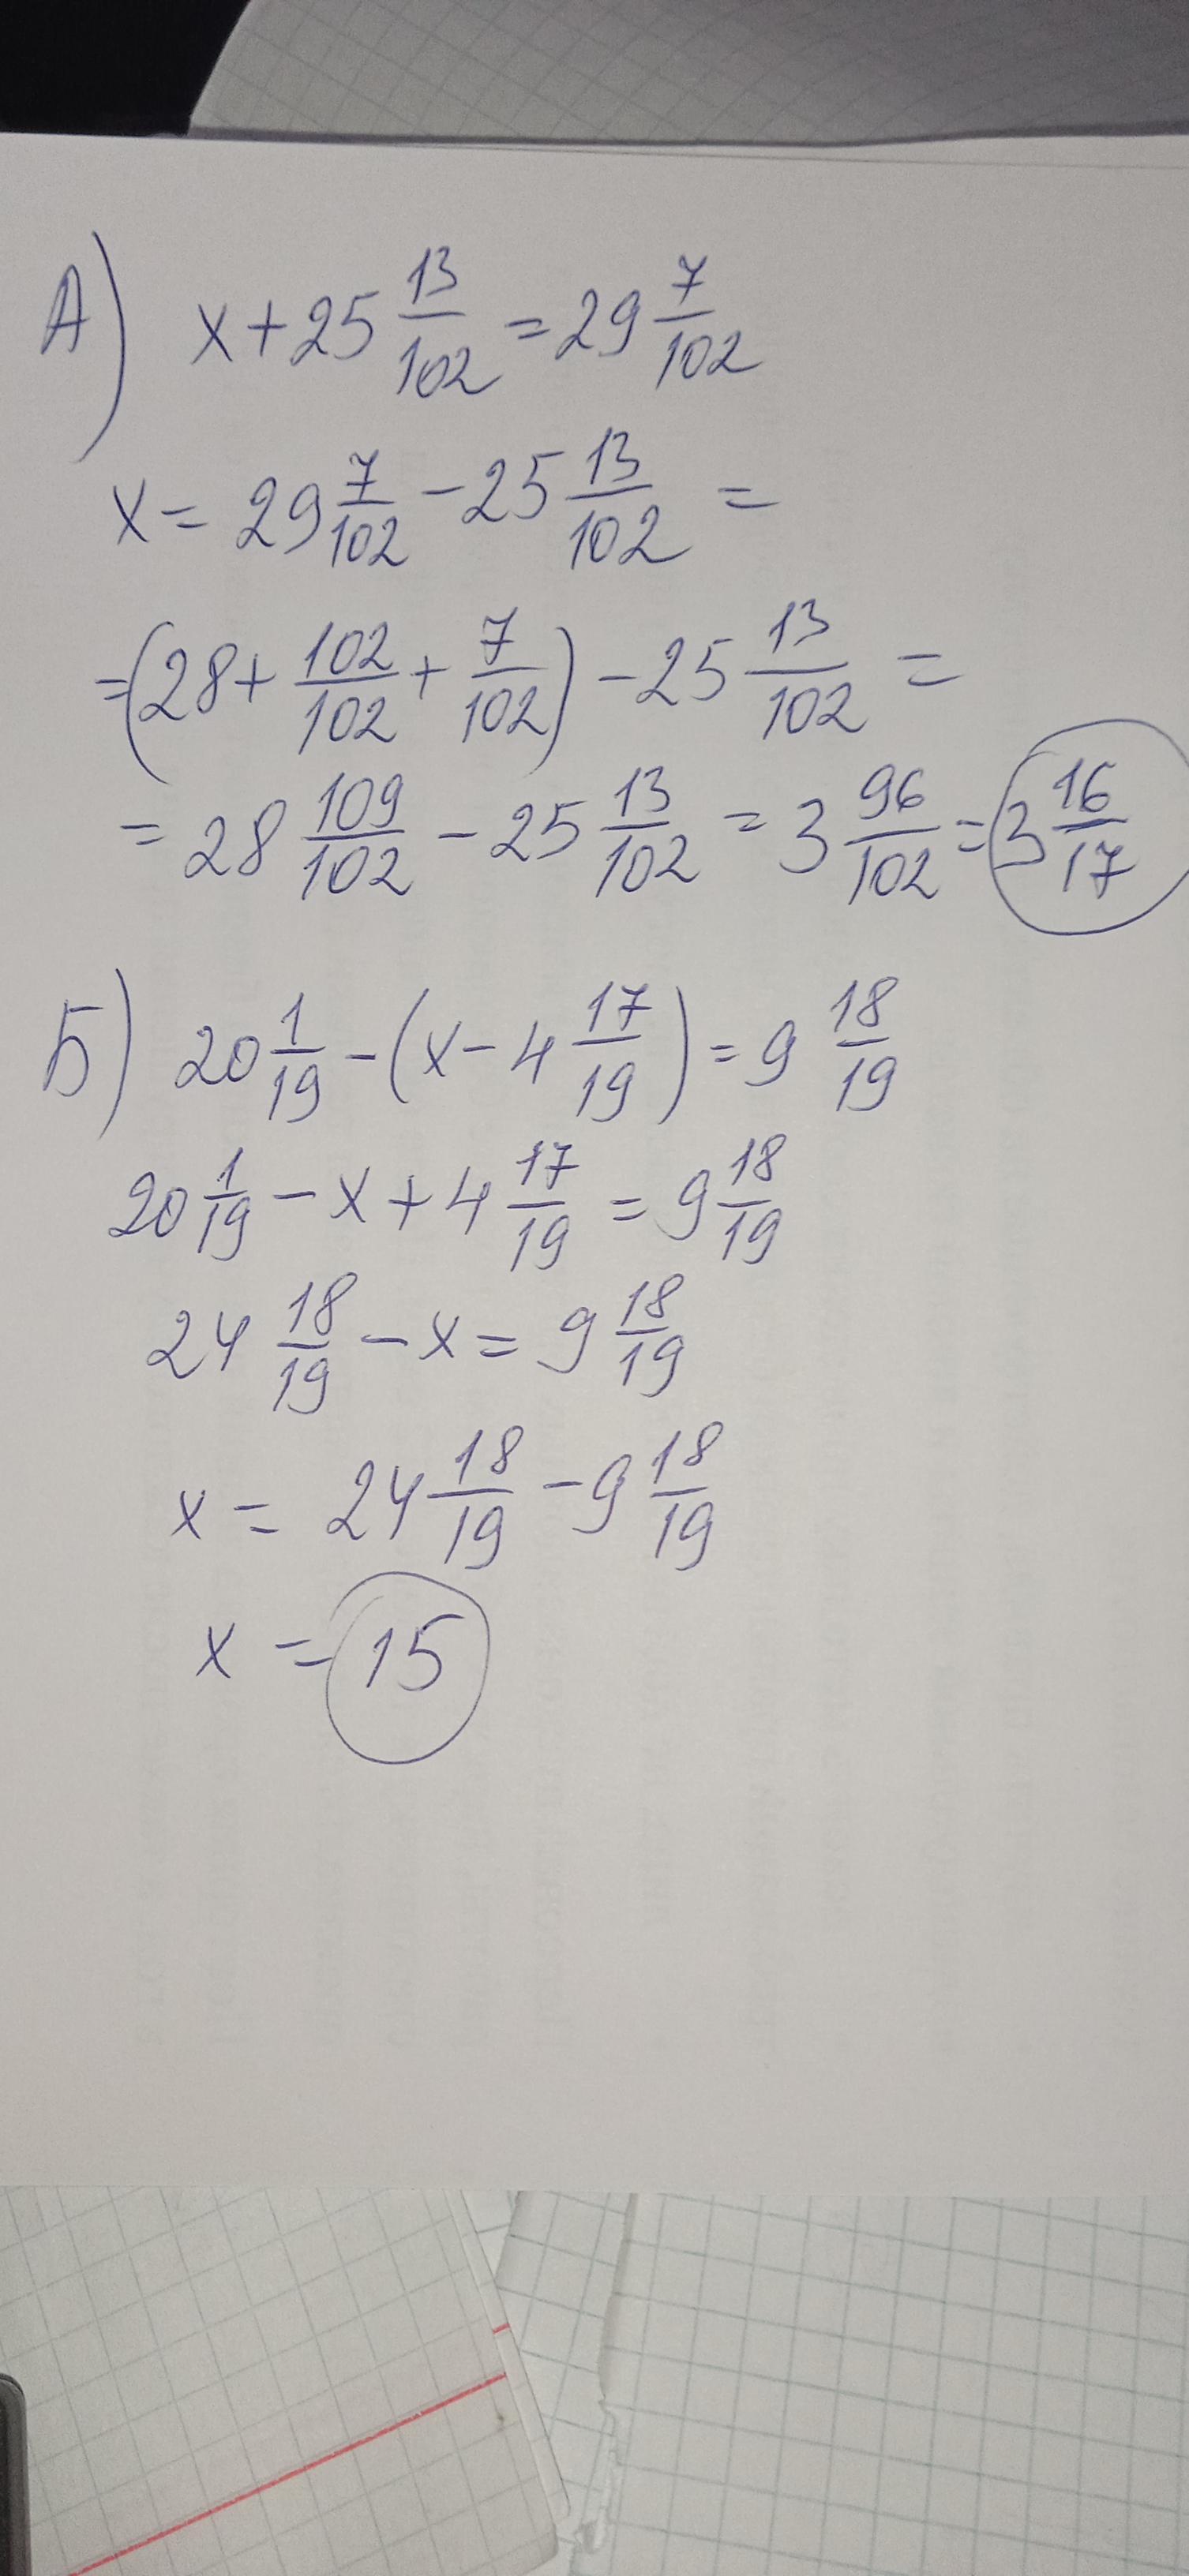 А) x + 25 13/102 = 29 7/102
x = 29 7/102 - 25 13/102 =
= (28 + 102/102 + 7/102) - 25 13/102 =
= 28 109/102 - 25 13/102 = 3 96/102 = 3 16/17
Б) 20 1/19 - (x - 4 17/19) = 9 18/19
20 1/19 - x + 4 17/19 = 9 18/19
24 18/19 - x = 9 18/19
x = 24 18/19 - 9 18/19
x = 15